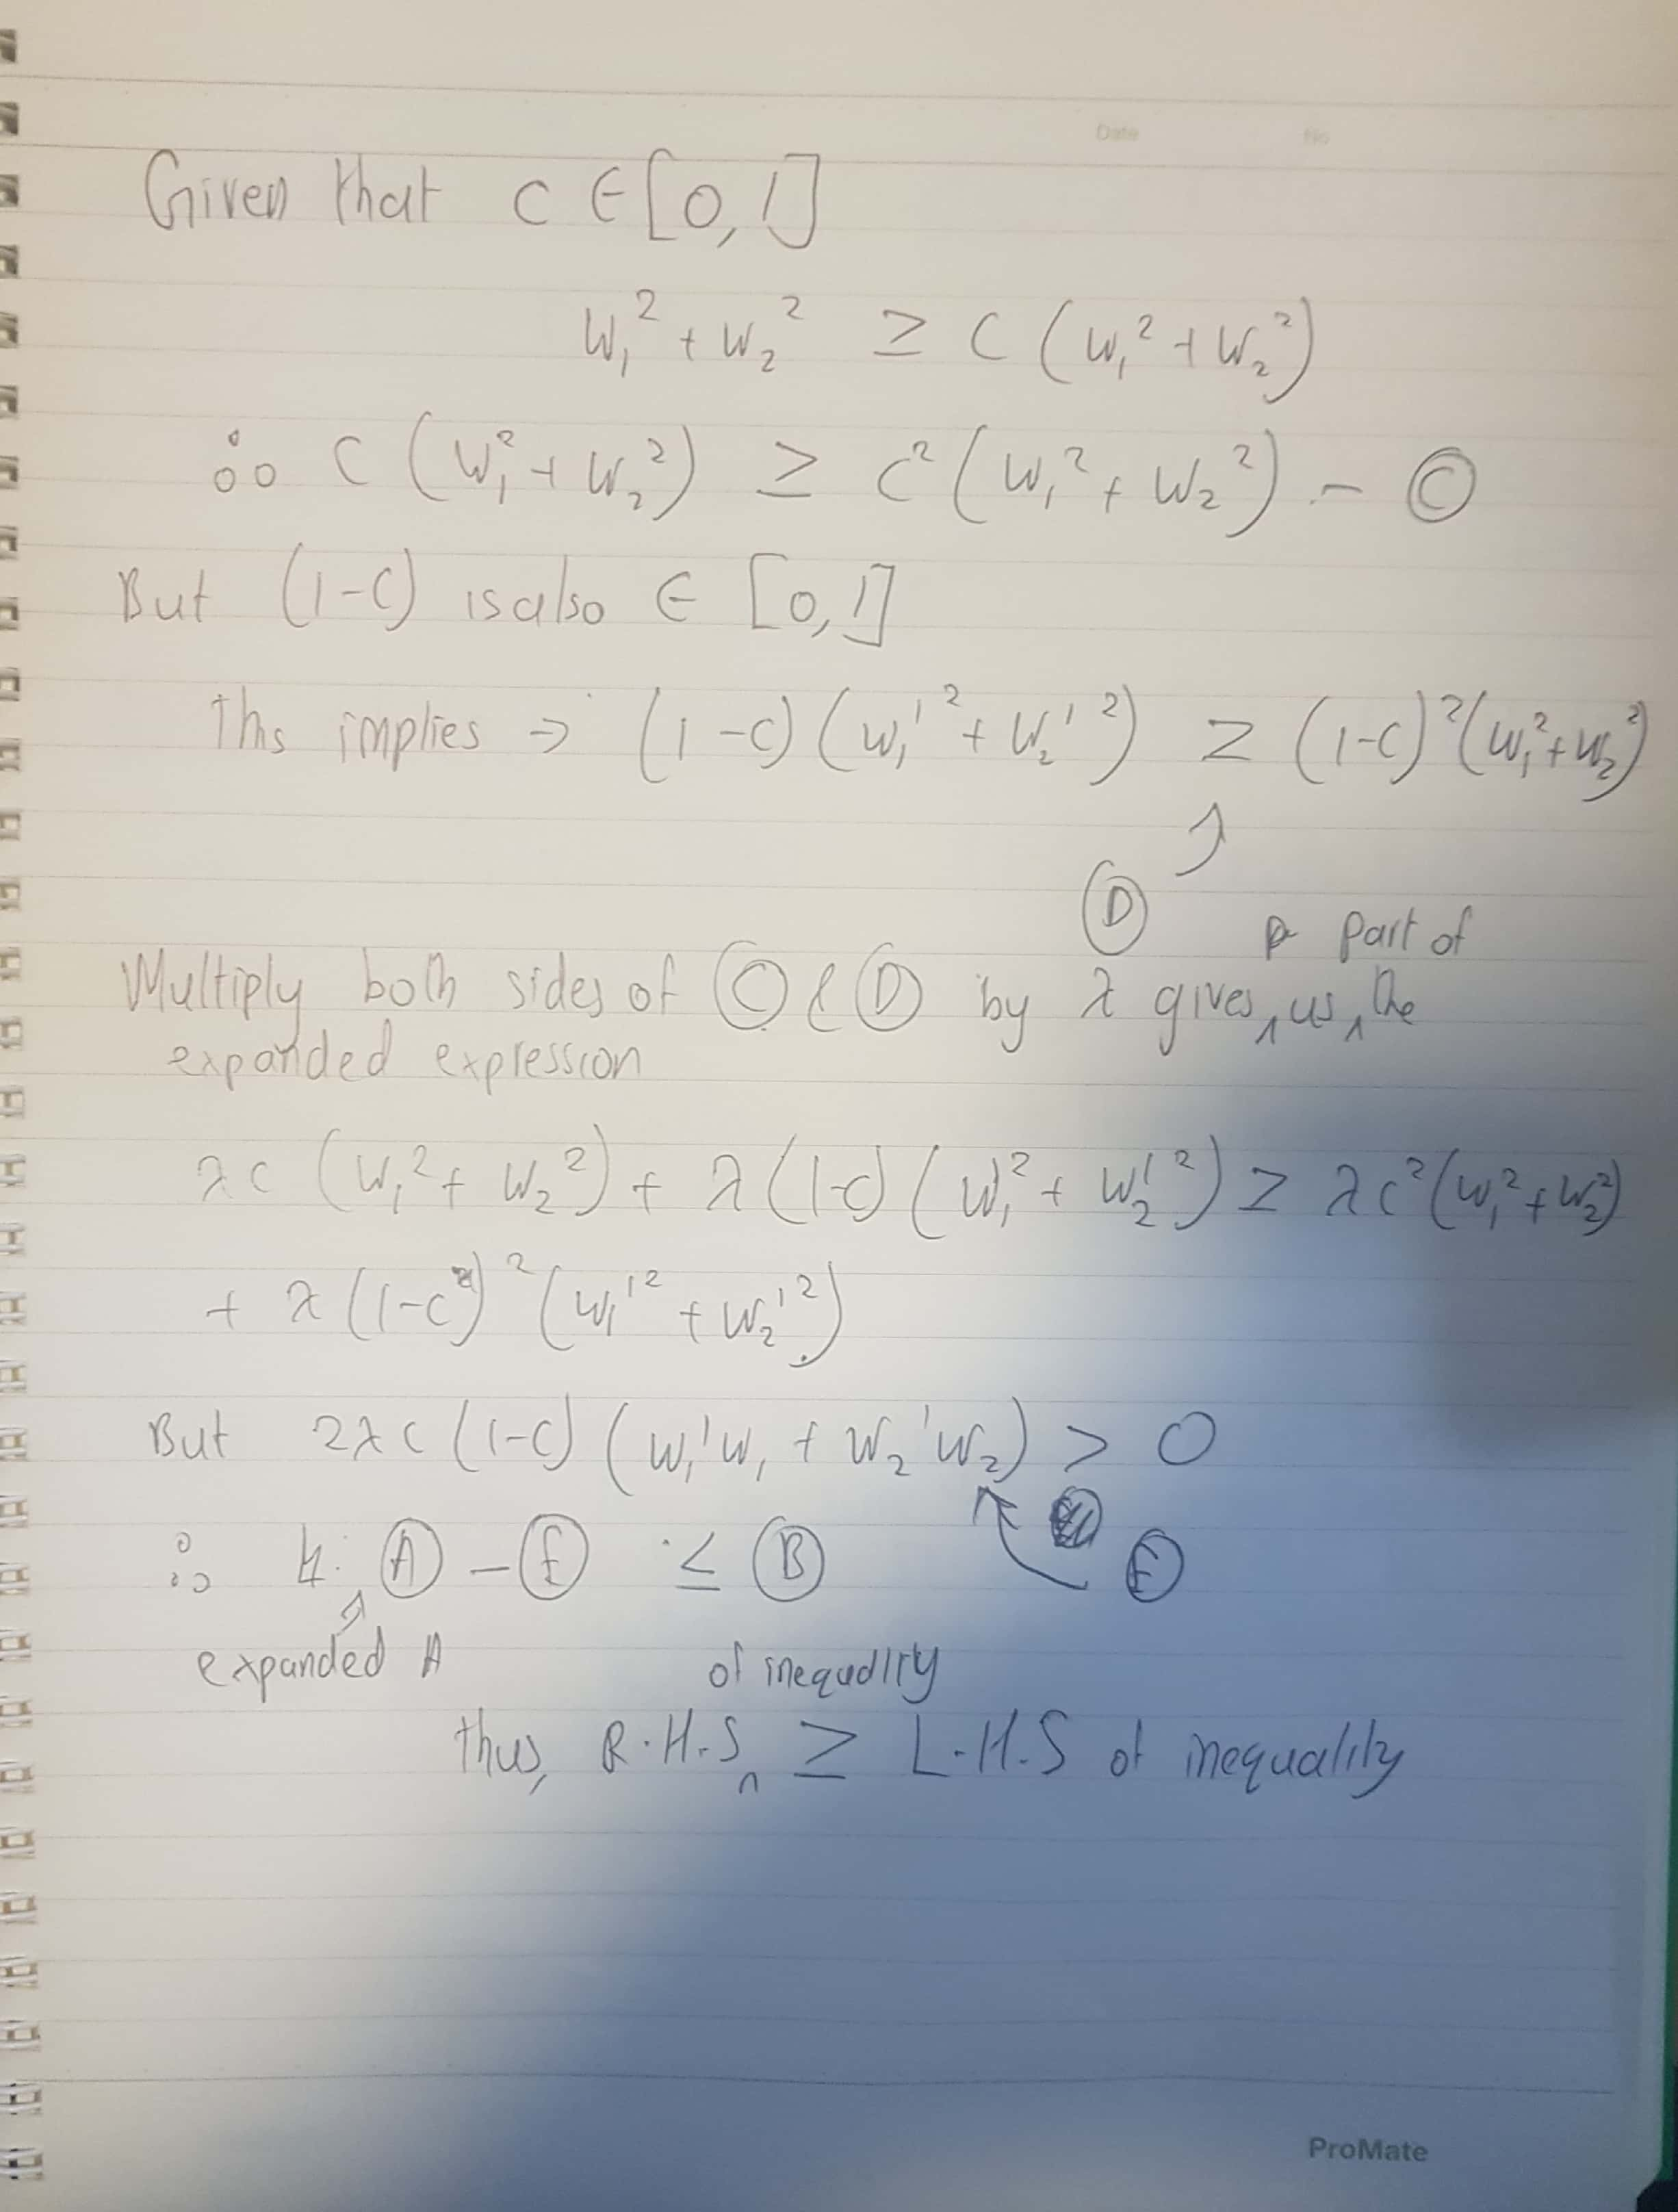 Date No
Given that C ∈ [0, 1]
W₁² + W₂² ≥ C (W₁² + W₂²)
∴ C (W₁² + W₂²) ≥ C² (W₁² + W₂²) - Ⓒ
But (1-C) is also ∈ [0, 1]
This implies → (1-C) (W₁'² + W₂'²) ≥ (1-C)² (W₁² + W₂²)
Ⓓ part of
Multiply both sides of Ⓒ & Ⓓ by λ gives us the
expanded expression
λC (W₁² + W₂²) + λ(1-C) (W₁'² + W₂'²) ≥ λC² (W₁² + W₂²)
+ λ (1-C)² (W₁'² + W₂'²)
But 2λC (1-C) (W₁'W₁ + W₂'W₂) > 0
∴ Ⓐ - Ⓔ ≤ Ⓑ Ⓔ
expanded A of inequality
thus, R.H.S ≥ L.H.S of inequality
ProMate